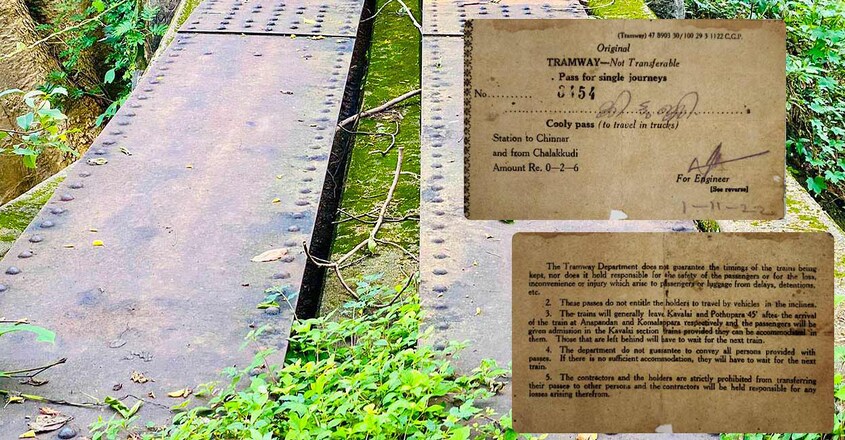 (Tramway) 47 8903 30/100 29 3 1122 C.G.P.
Original
TRAMWAY—Not Transferable
Pass for single journeys
No. 8154
Cooly pass (to travel in trucks)
Station to Chinnar
and from Chalakkudi
Amount Re. 0–2–6
For Engineer
[See reverse]
1-11-22
The Tramway Department does not guarantee the timings of the trains being
kept, nor does it held responsible for the safety of the passengers or for the loss,
inconvenience or injury which arise to passengers or luggage from delays, detentions,
etc.
2. These passes do not entitle the holders to travel by vehicles in the inclines.
3. The trains will generally leave Kavalai and Pothupara 45' after the arrival
of the train at Anapandan and Komalappara respectively and the passengers will be
given admission in the Kavalai section trains provided they can be accommodated in
them. Those that are left behind will have to wait for the next train.
4. The department do not guarantee to convey all persons provided with
passes. If there is no sufficient accommodation, they will have to wait for the next
train.
5. The contractors and the holders are strictly prohibited from transferring
their passes to other persons and the contractors will be held responsible for any
losses arising therefrom.